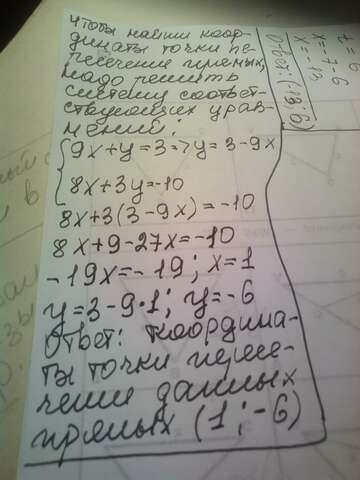 Чтобы найти коор-
динаты точки пе-
ресечения прямых,
надо решить
систему соответ-
ствующих урав-
нений:
9x+y=3=>y=3-9x
8x+3y=-10
8x+3(3-9x)=-10
8x+9-27x=-10
-19x=-19; x=1
y=3-9·1; y=-6
Ответ: координа-
ты точки пересе-
чении данных
прямых (1;-6)
x=-7-6
x=-13
Ответ: (-13;6)